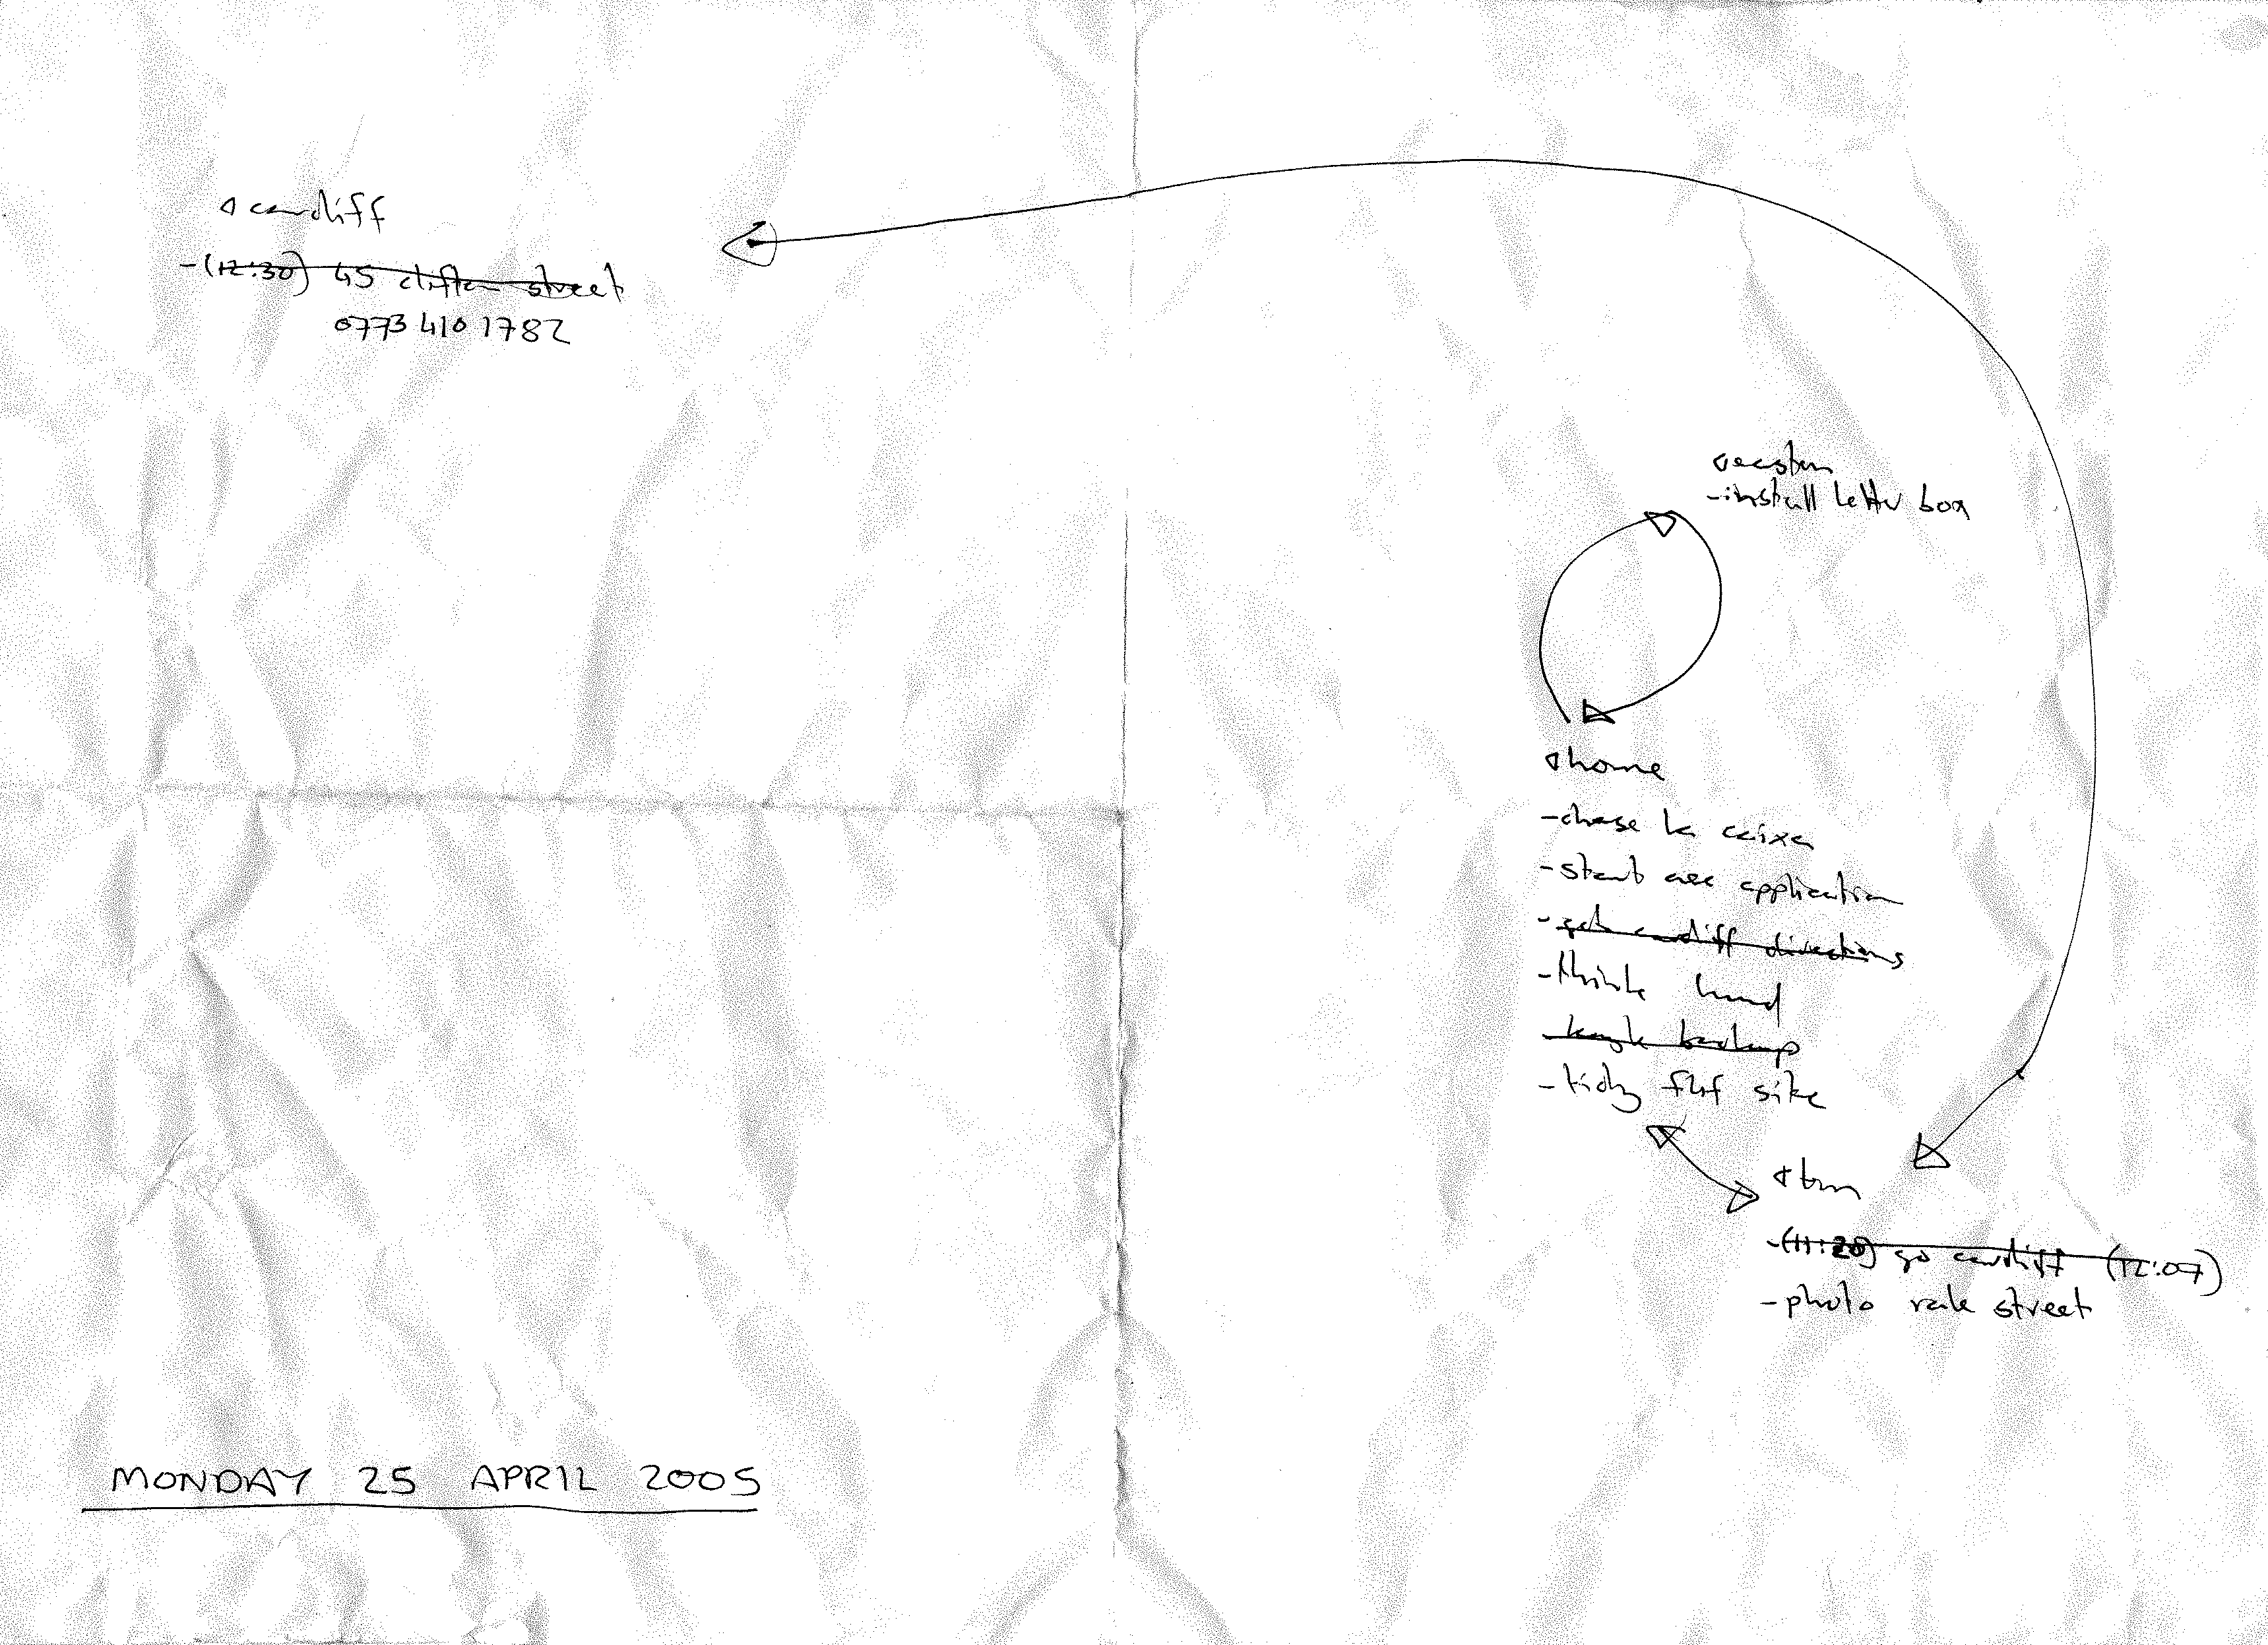 cardiff
-(12:30) 45 clifton street
0773 410 1782
easton
-install letter box
home
-chase la caixa
-start application
-get cardiff directions
-think hard
backup
-tidy site
-(11:20) go cardiff (12:07)
-photo street
MONDAY 25 APRIL 2005